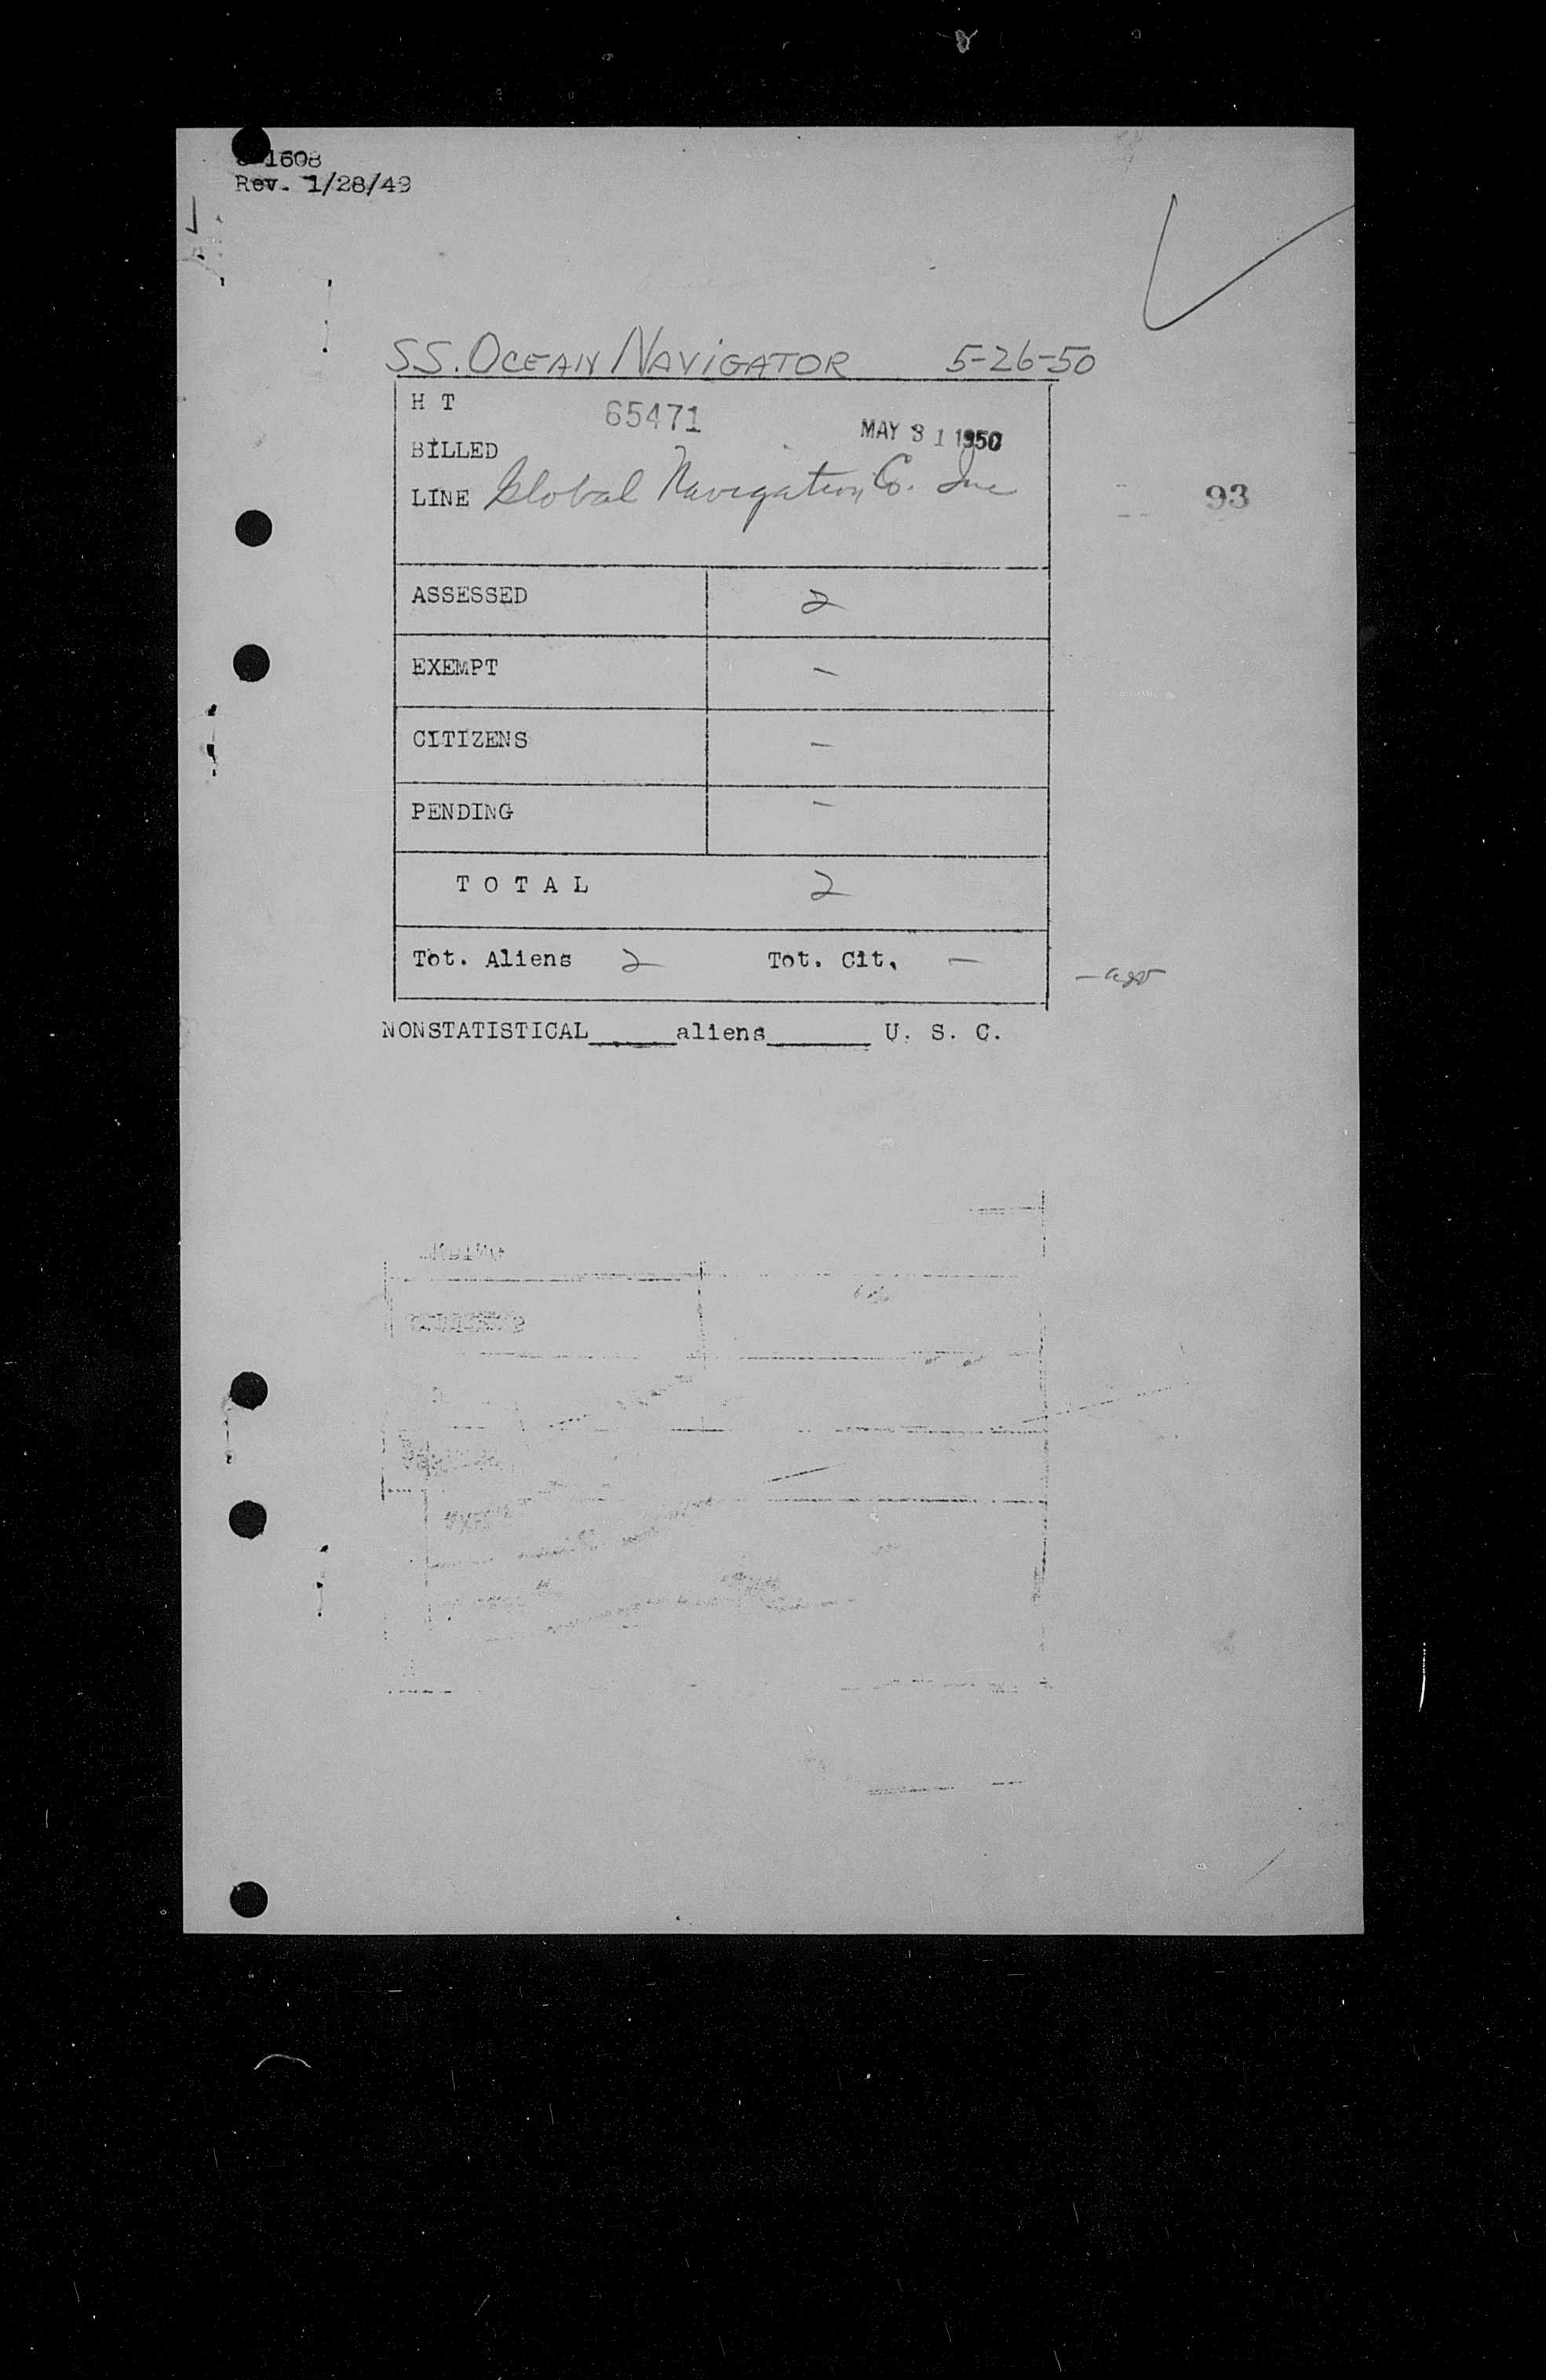 1608
Rev. 1/28/49
SS. OCEAN NAVIGATOR 5-26-50
H T 65471
MAY 31 1950
BILLED
LINE Global Navigation Co. Inc
93
ASSESSED 2
EXEMPT –
CITIZENS –
PENDING –
T O T A L 2
Tot. Aliens 2 Tot. Cit. –
NONSTATISTICAL_____aliens______ U. S. C.